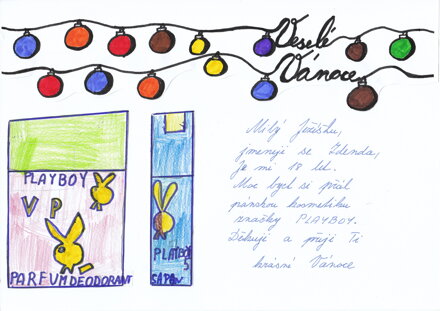 Veselé
Vánoce
PLAYBOY
V P
PARFUMDEODORANT
PLAYBOY
Milý Ježíšku,
jmenuji se Zdenda,
Je mi 18 let.
Moc bych si přál
pánskou kosmetiku
značky PLAYBOY.
Děkuji a přeji Ti
krásné Vánoce